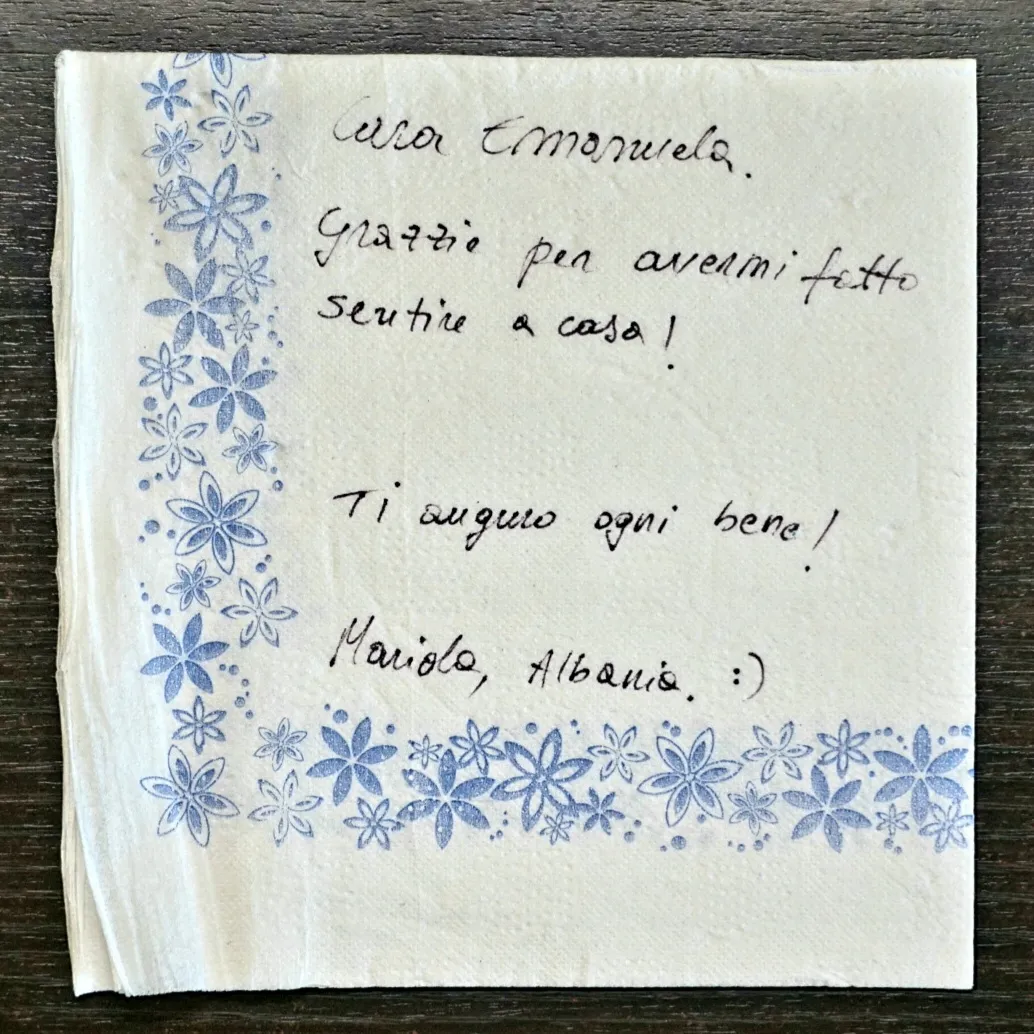 Cara Emanuela.
Grazzie per avermi fatto
sentire a casa!
Ti auguro ogni bene!
Mariola, Albania. :)